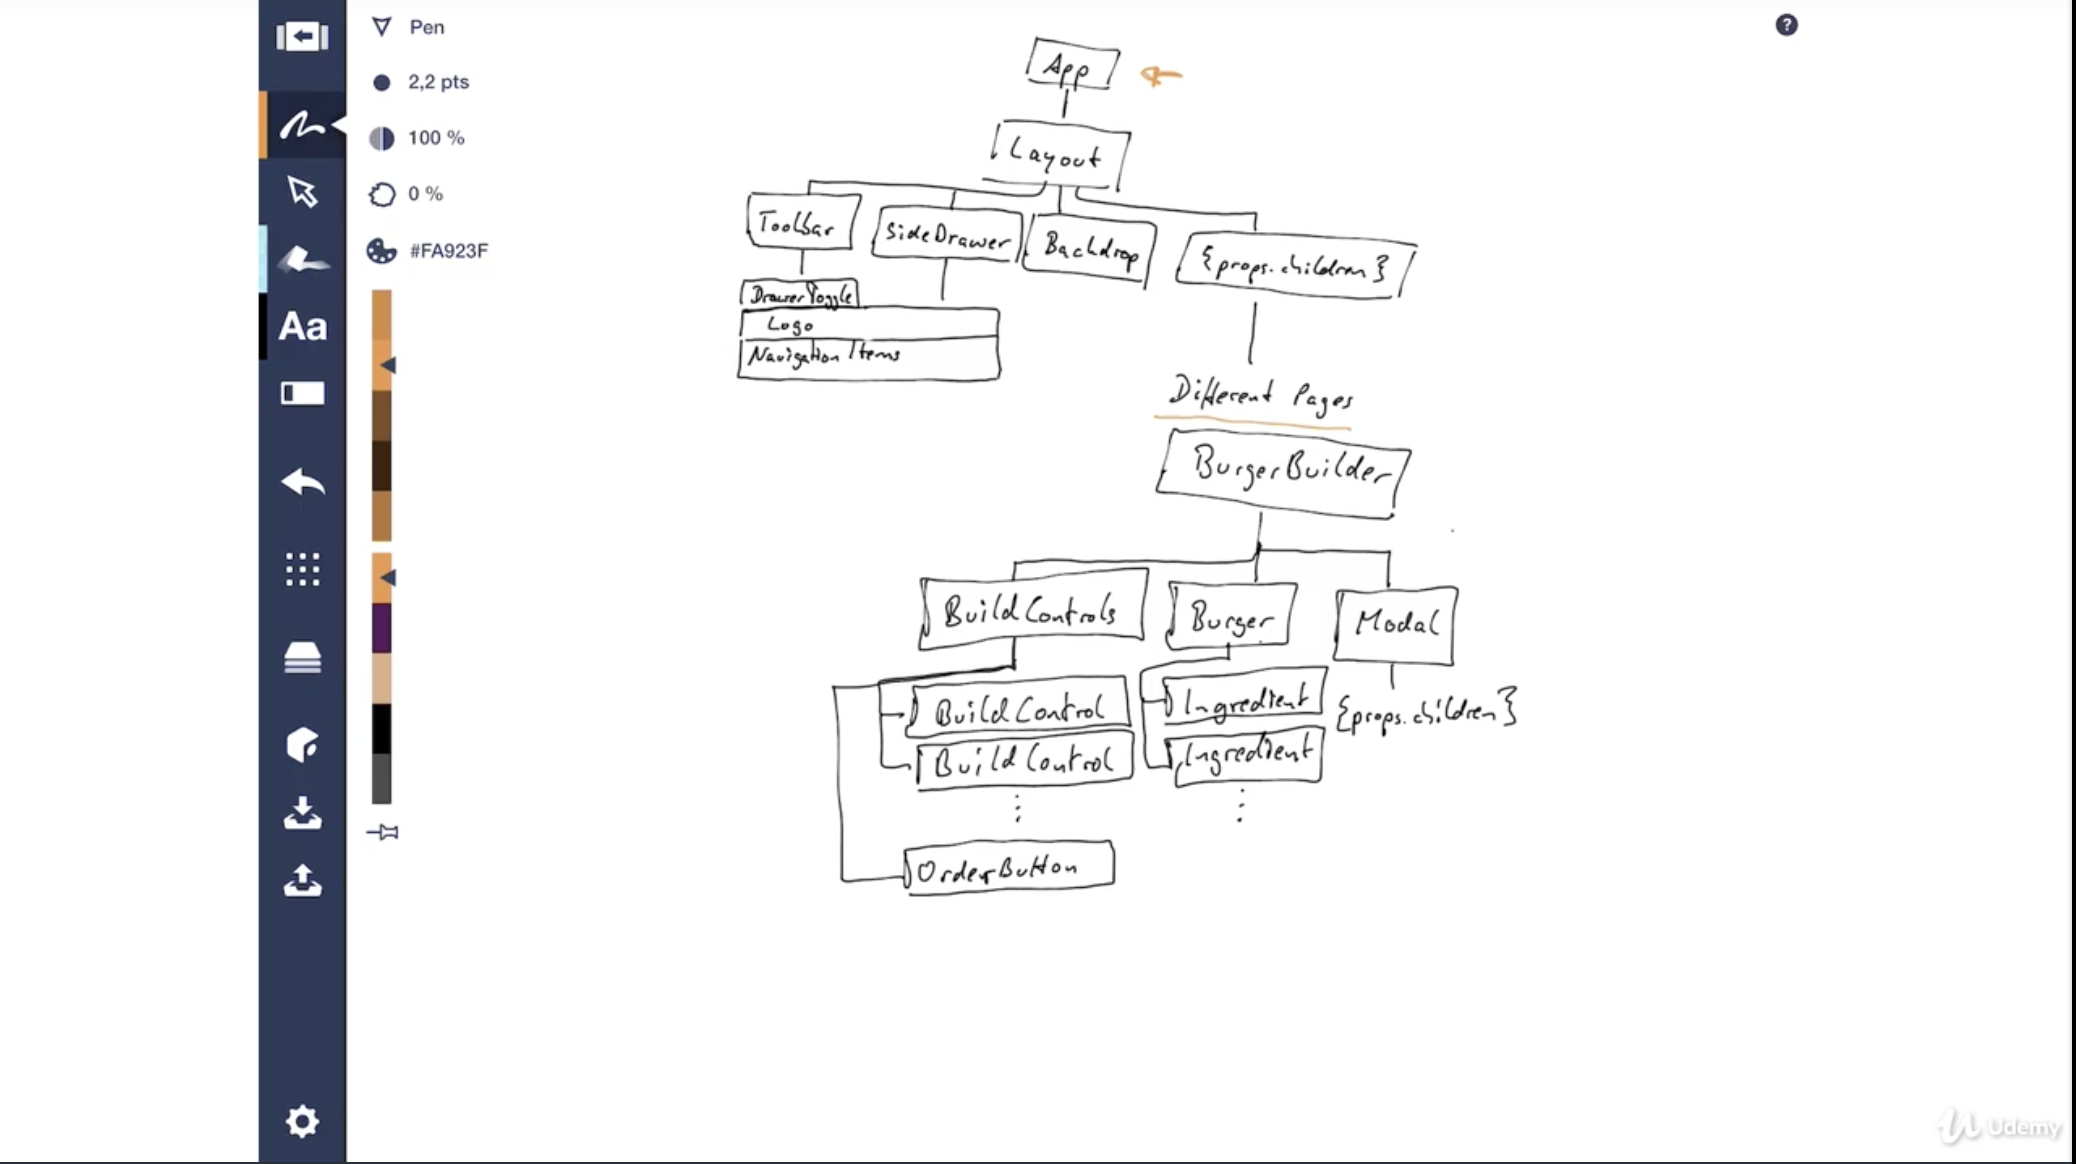 Pen
2,2 pts
100 %
0 %
#FA923F
Aa
?
App
Layout
Toolbar
SideDrawer
Backdrop
{props.children}
DrawerToggle
Logo
Navigation Items
Different Pages
BurgerBuilder
BuildControls
Burger
Modal
BuildControl
Ingredient
{props.children}
BuildControl
Ingredient
OrderButton
Udemy